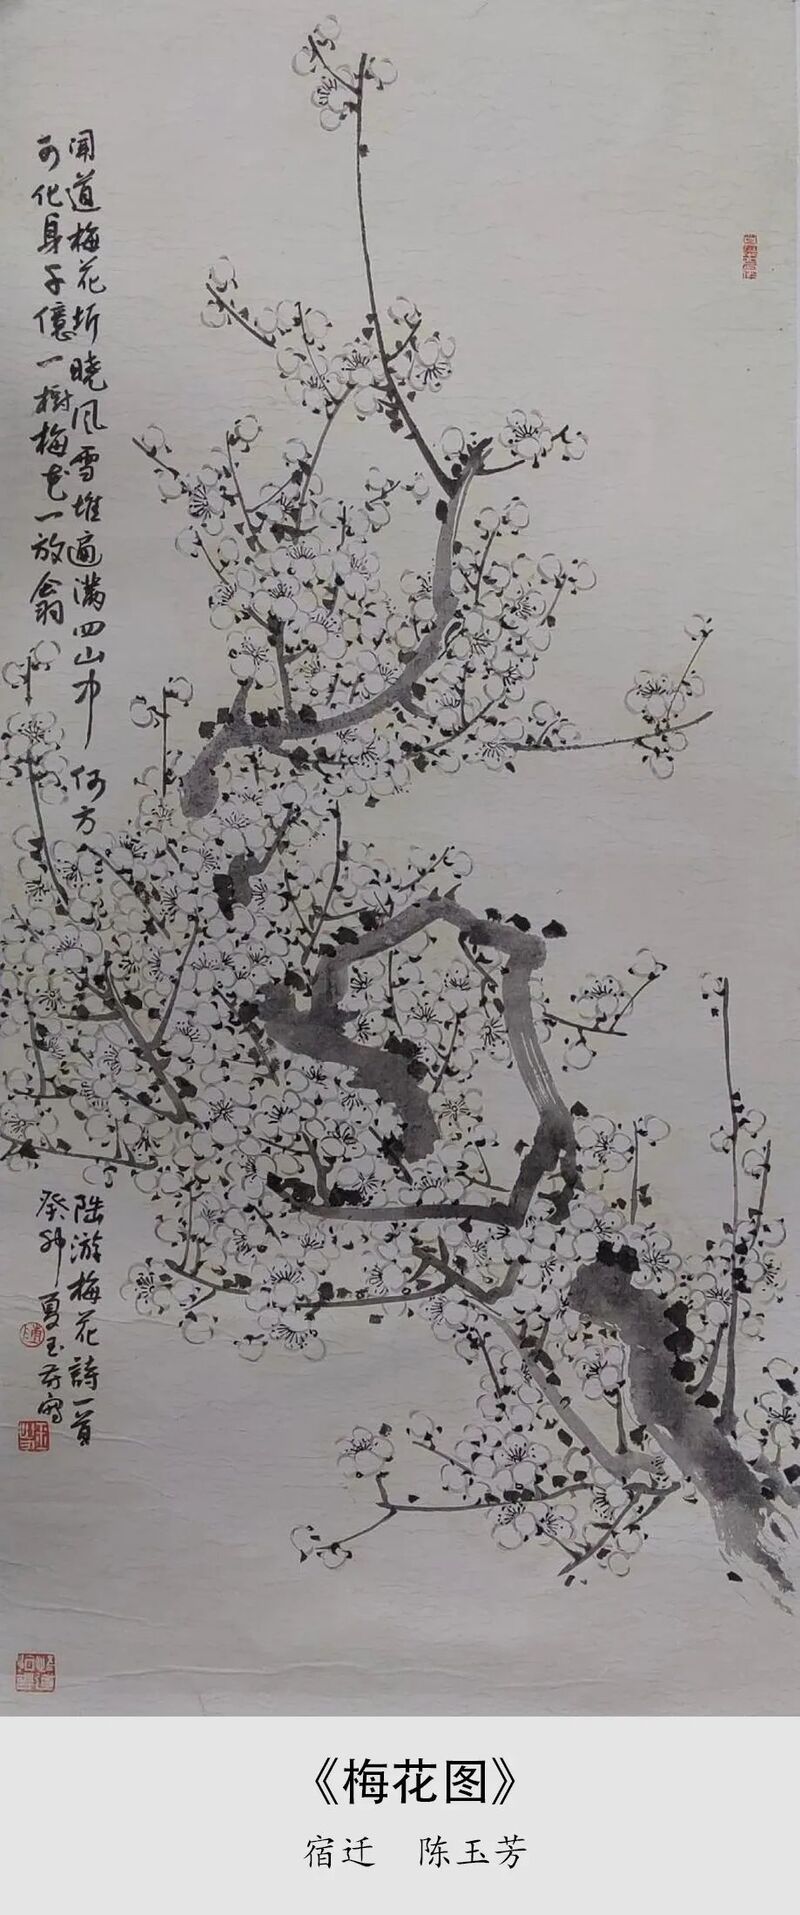 闻道梅花坼晓风雪堆遍满四山中何方
可化身千億一樹梅花一放翁
陆游梅花詩一首
癸卯夏玉芳写
《梅花图》
宿迁 陈玉芳